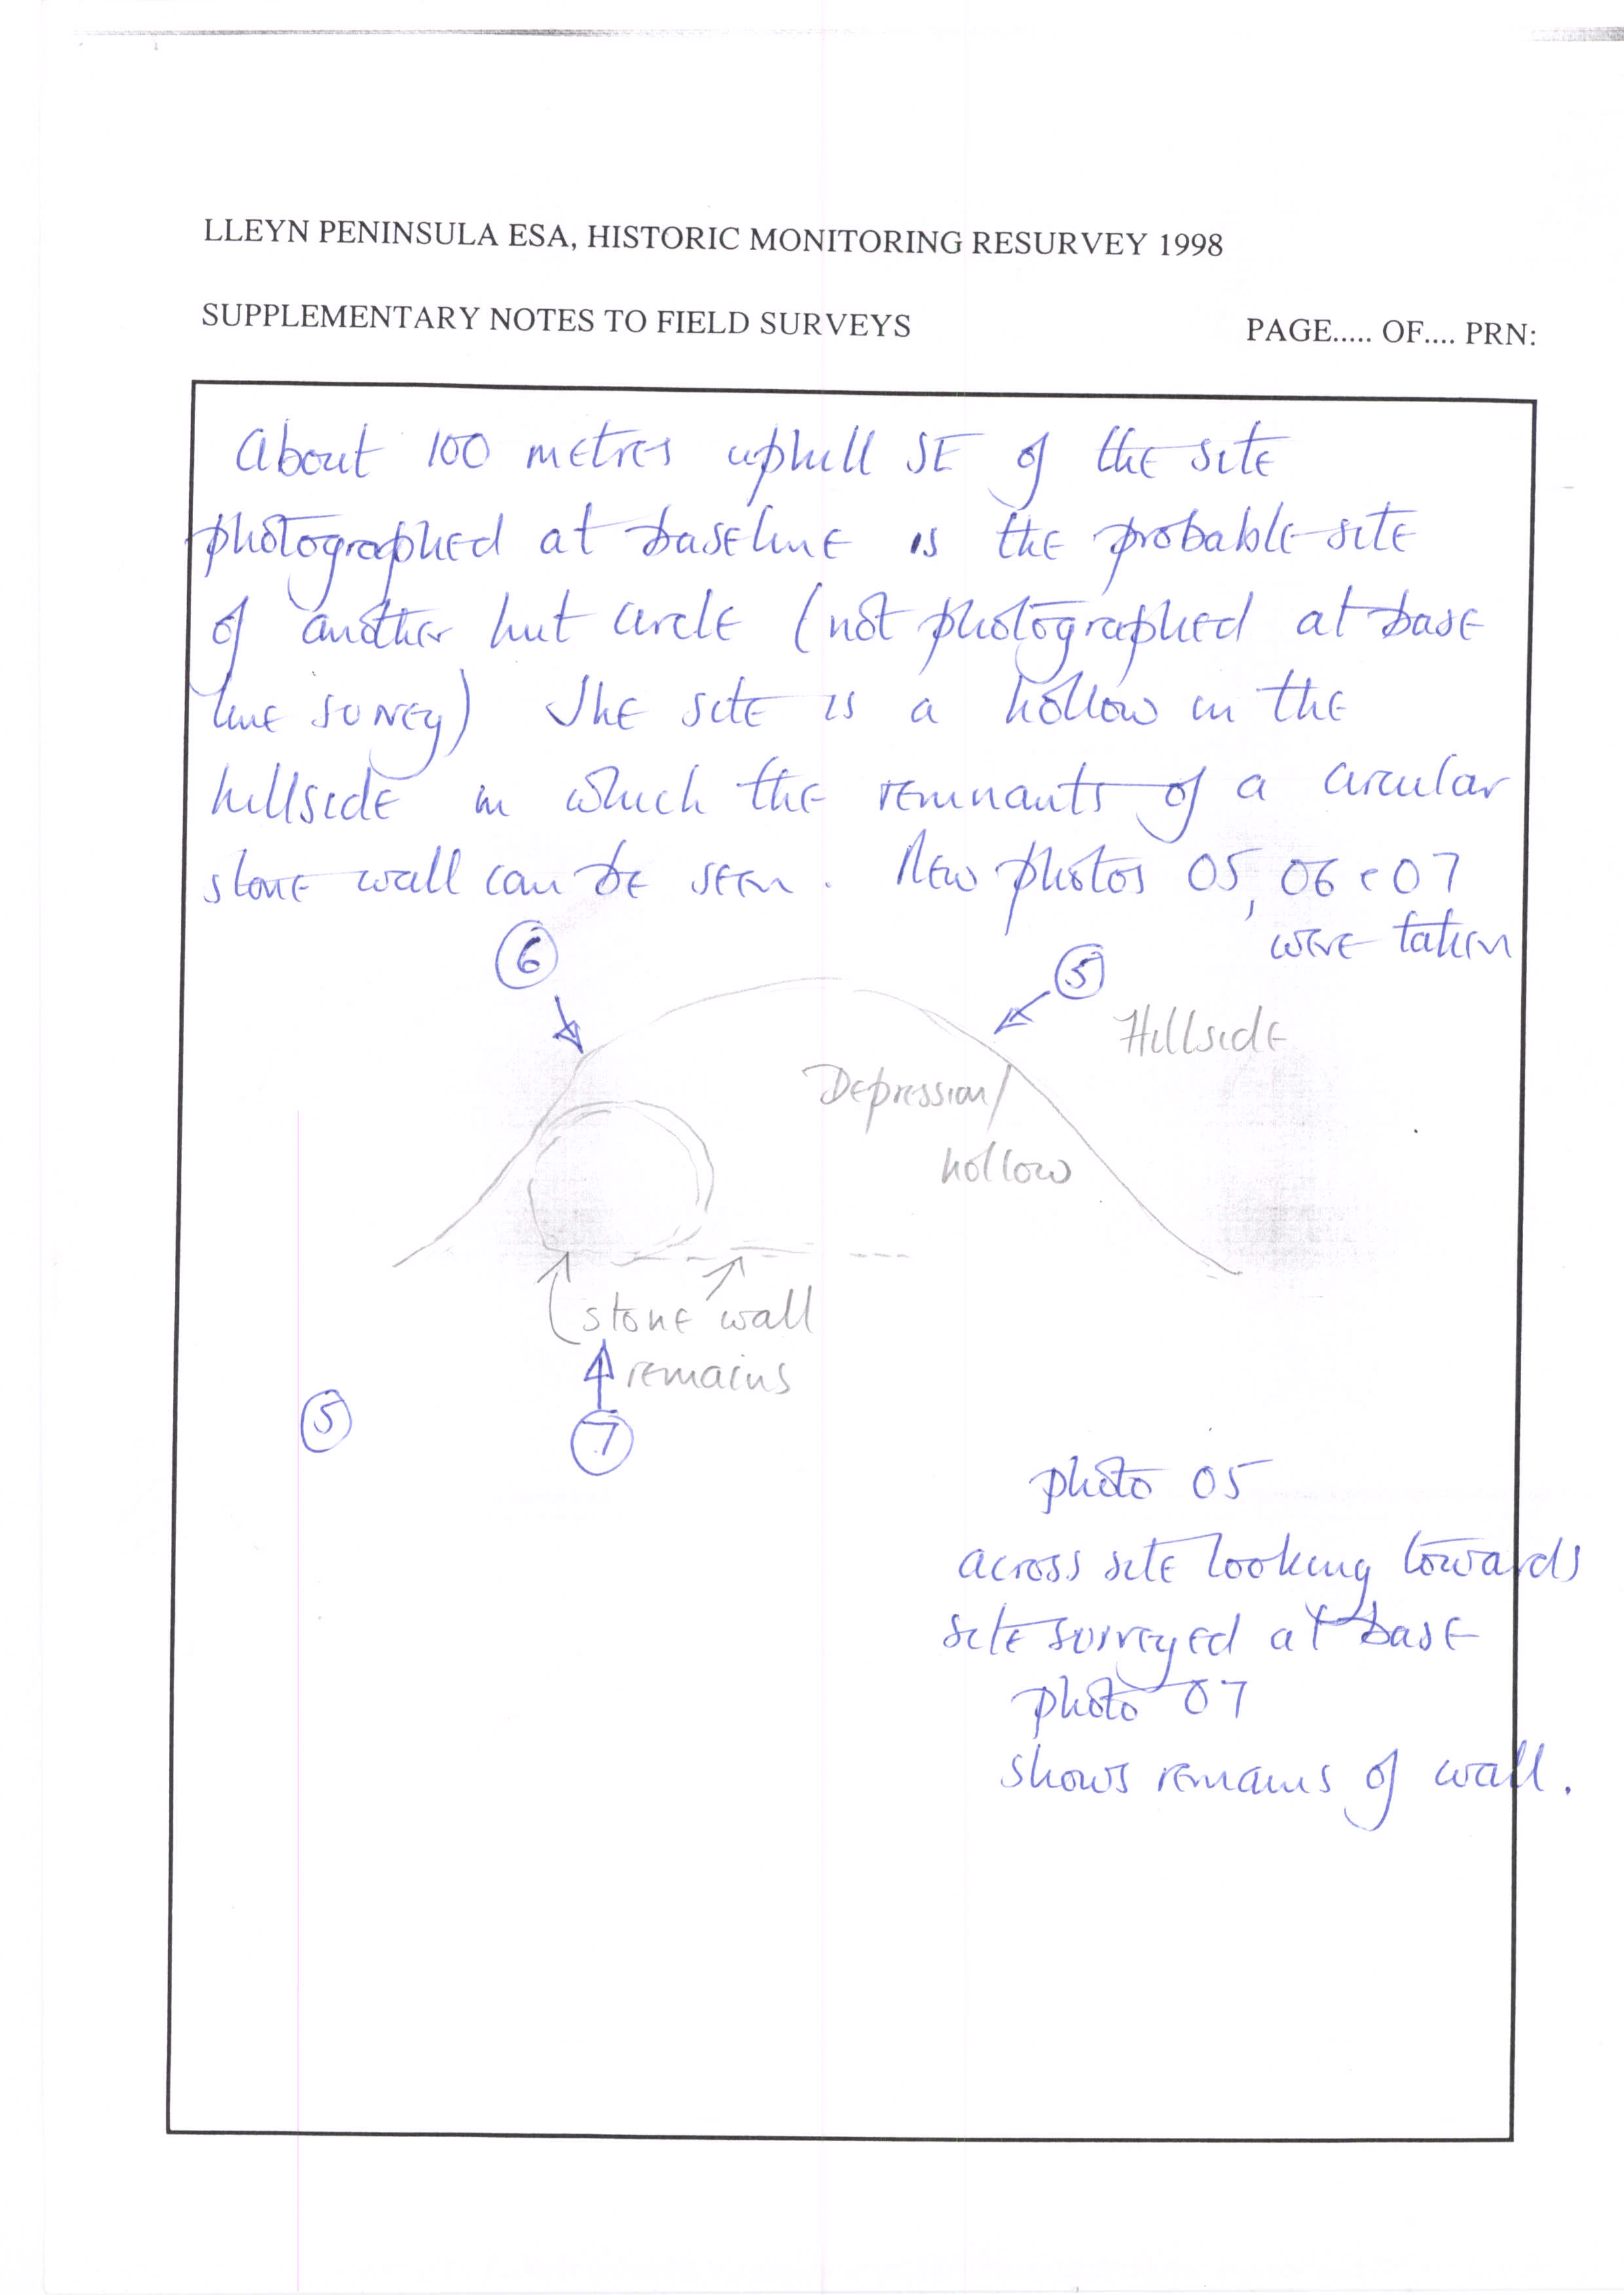 LLEYN PENINSULA ESA, HISTORIC MONITORING RESURVEY 1998
SUPPLEMENTARY NOTES TO FIELD SURVEYS PAGE..... OF.... PRN:
About 100 metres uphill SE of the site
photographed at baseline is the probable site
of another hut circle (not photographed at base
line survey) The site is a hollow in the
hillside in which the remnants of a circular
stone wall can be seen. New photos 05, 06 & 07
were taken
6
5
Hillside
Depression/
hollow
stone wall
remains
5
7
photo 05
across site looking towards
site surveyed at base
photo 07
shows remains of wall.